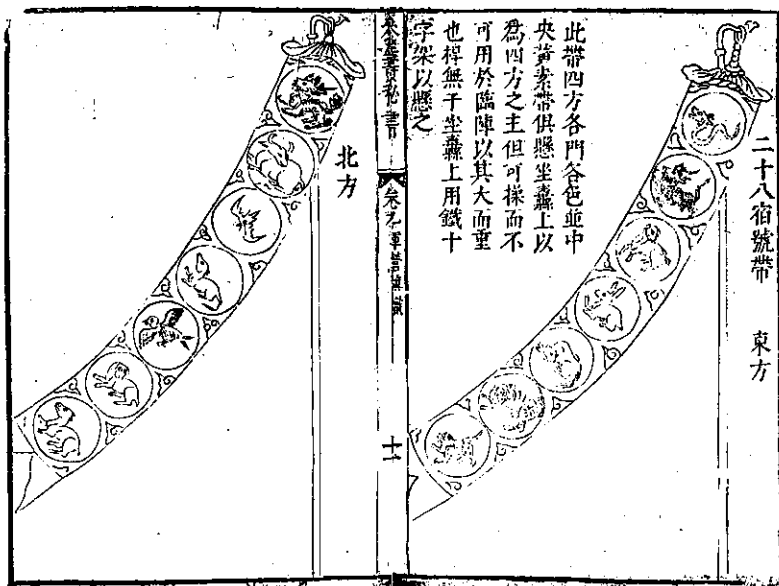 二十八宿號帶　東方
此帶四方各門各色並中
央黃素帶俱懸坐纛上以
爲四方之主但可操而不
可用於臨陣以其大而重
也桿無于坐纛上用鐵十
字架以懸之
北方
十一